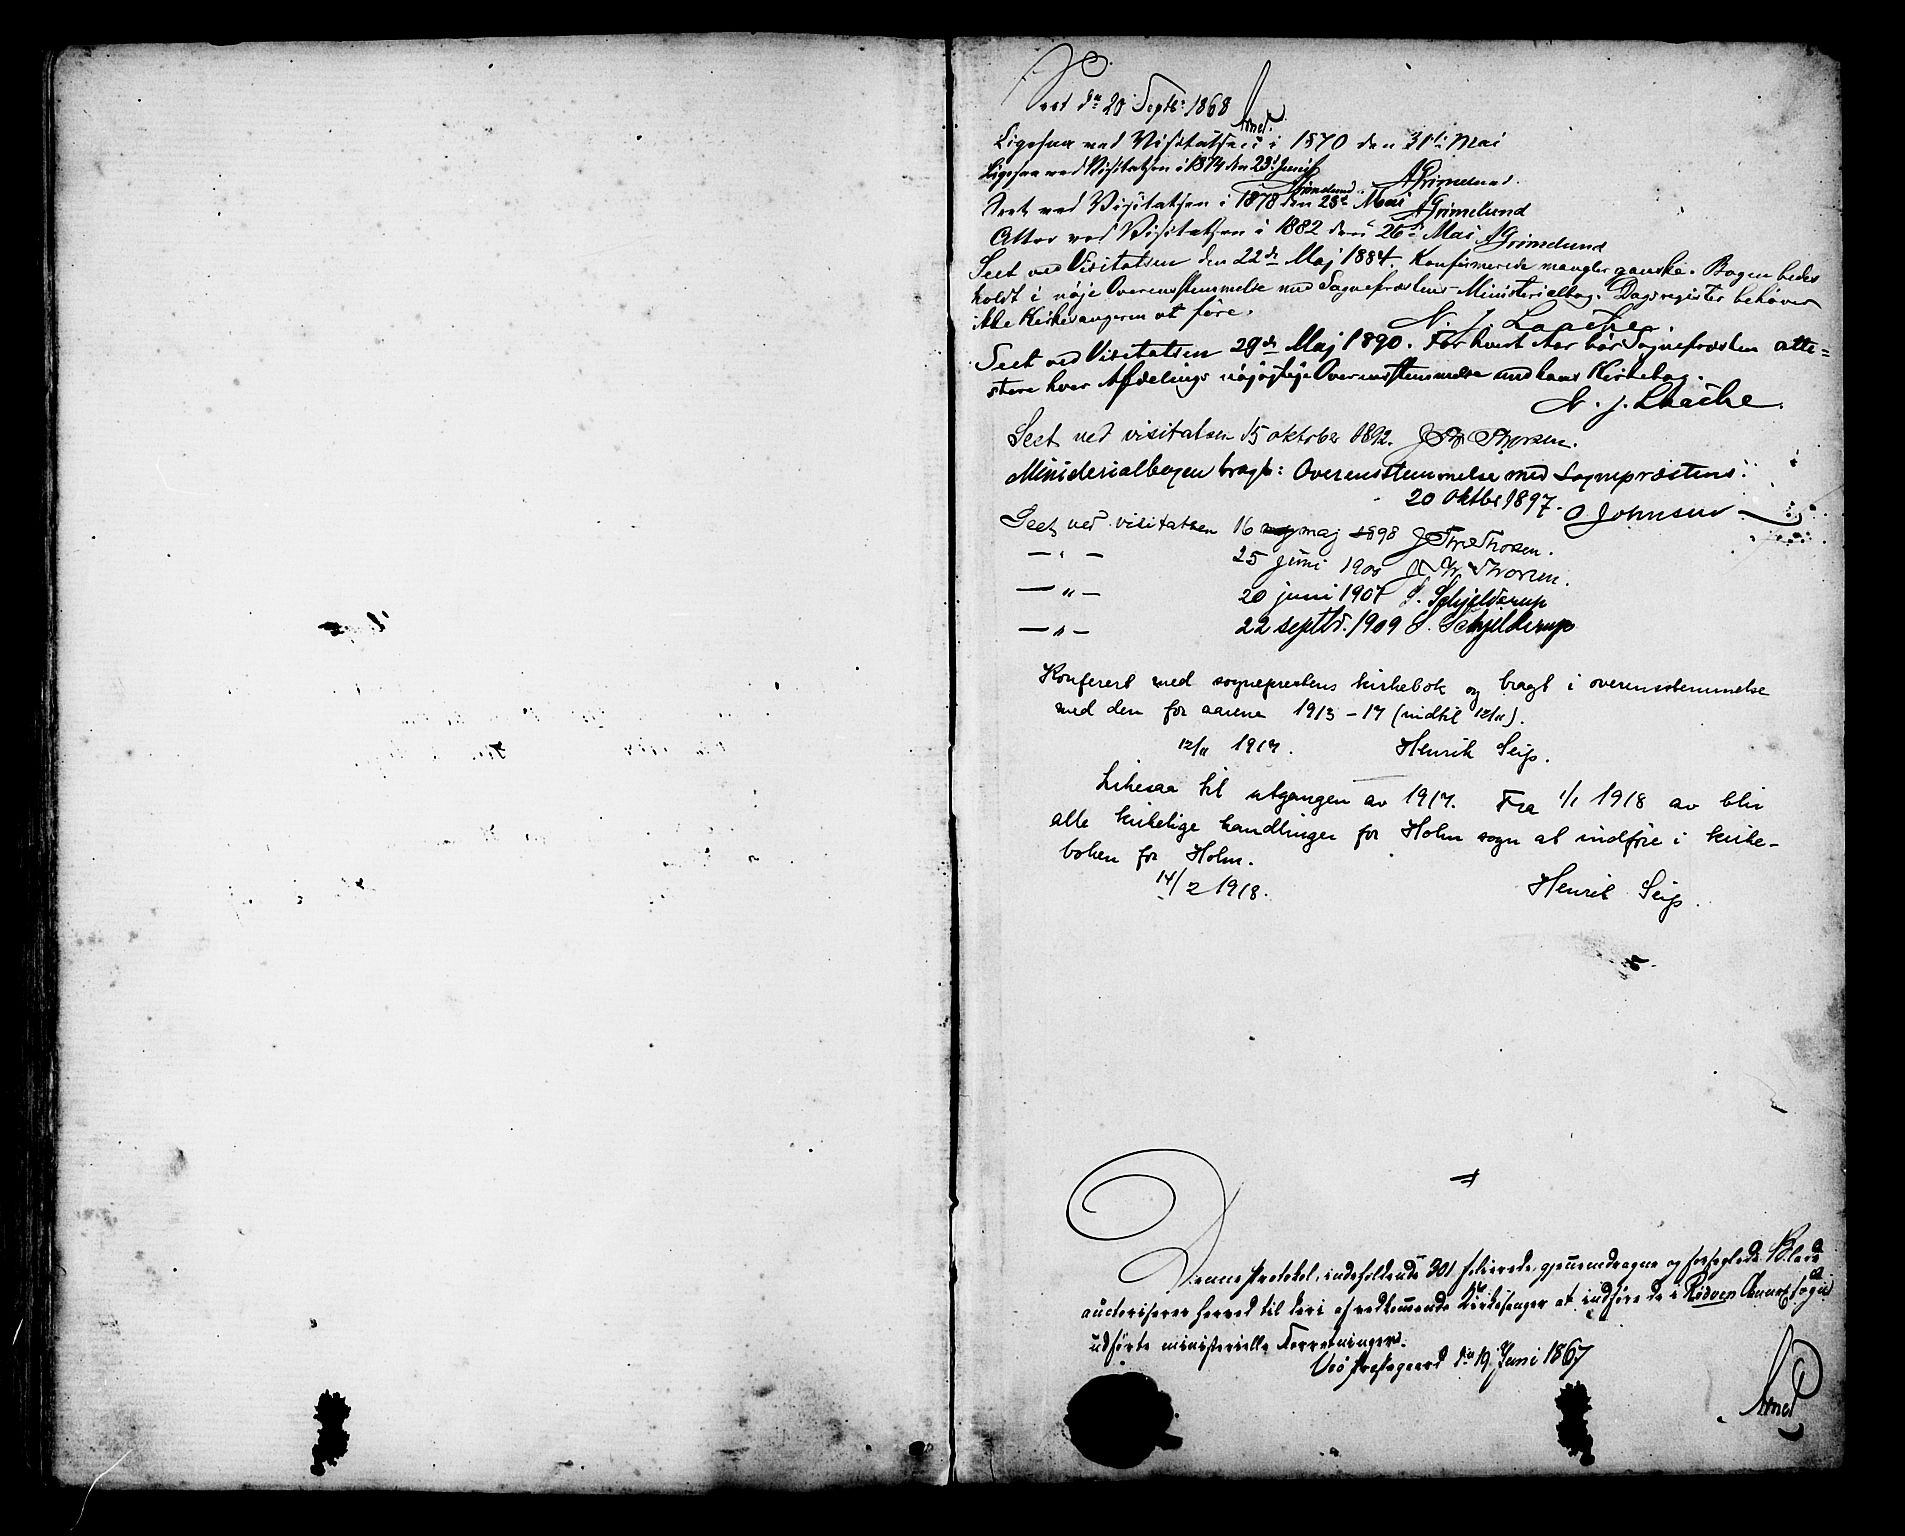 Seet dn 20 Septbr 1868
Arnet.
Ligesaa ved Visitatsen i 1870 den 31te Mai
AGrimelund.
Ligesaa ved Visitatsen i 1874 den 23d Juni
Grimelund.
Seet ved Visitatsen i 1878 den 28de Mai AGrimelund
Atter ved Visitatsen i 1882 den 26de Mai AGrimelund
Seet ved Visitatsen den 22de Maj 1884. Konfirmerede mangler ganske. Bogen bedes
holdt i nøje Overensstemmelse med Sognepræstens Ministerialbog. Dagsregister behøver
ikke Kirkesangeren at føre.
N. J. Laache.
Seet ved Visitatsen 29de Maj 1890. For hvert Aar bør Sognepræsten atte=
stere hver Afdelings nøjagtige Overensstemmelse med hans Kirkebog.
N. J. Laache.
Seet ved visitatsen 15 oktober 1892. Thorsen.
Ministerialbogen bragt i Overensstemmelse med Sognepræstens.
20 Oktbr 1897. O Johnsen
Seet ved visitatsen 16 maj 1898 Thorsen.
— " — 25 juni 1900 Thorsen.
— " — 20 juni 1907 Schjelderup
— " — 22 septb. 1909 Schjelderup
Konferert med sogneprestens kirkebok og bragt i overensstemmelse
med den for aarene 1913 - 17 (indtil 12/11).
12/11 1917. Henrik Seip.
Likesaa til utgangen av 1917. Fra 1/1 1918 av blir
alle kirkelige handlinger for Holm sogn at indføre i kirke-
boken for Holm.
14/2 1918. Henrik Seip.
Denne Protokol, indeholdende 301 folierede, gjennemdragne og forseglede Blade
auctoriseres herved til deri af vedkommende Kirkesanger at indføre de i Rødven Annexsogn
udførte ministerielle Forretninger.
Veø Præstegaard dn 19 Juni 1867
Arnet